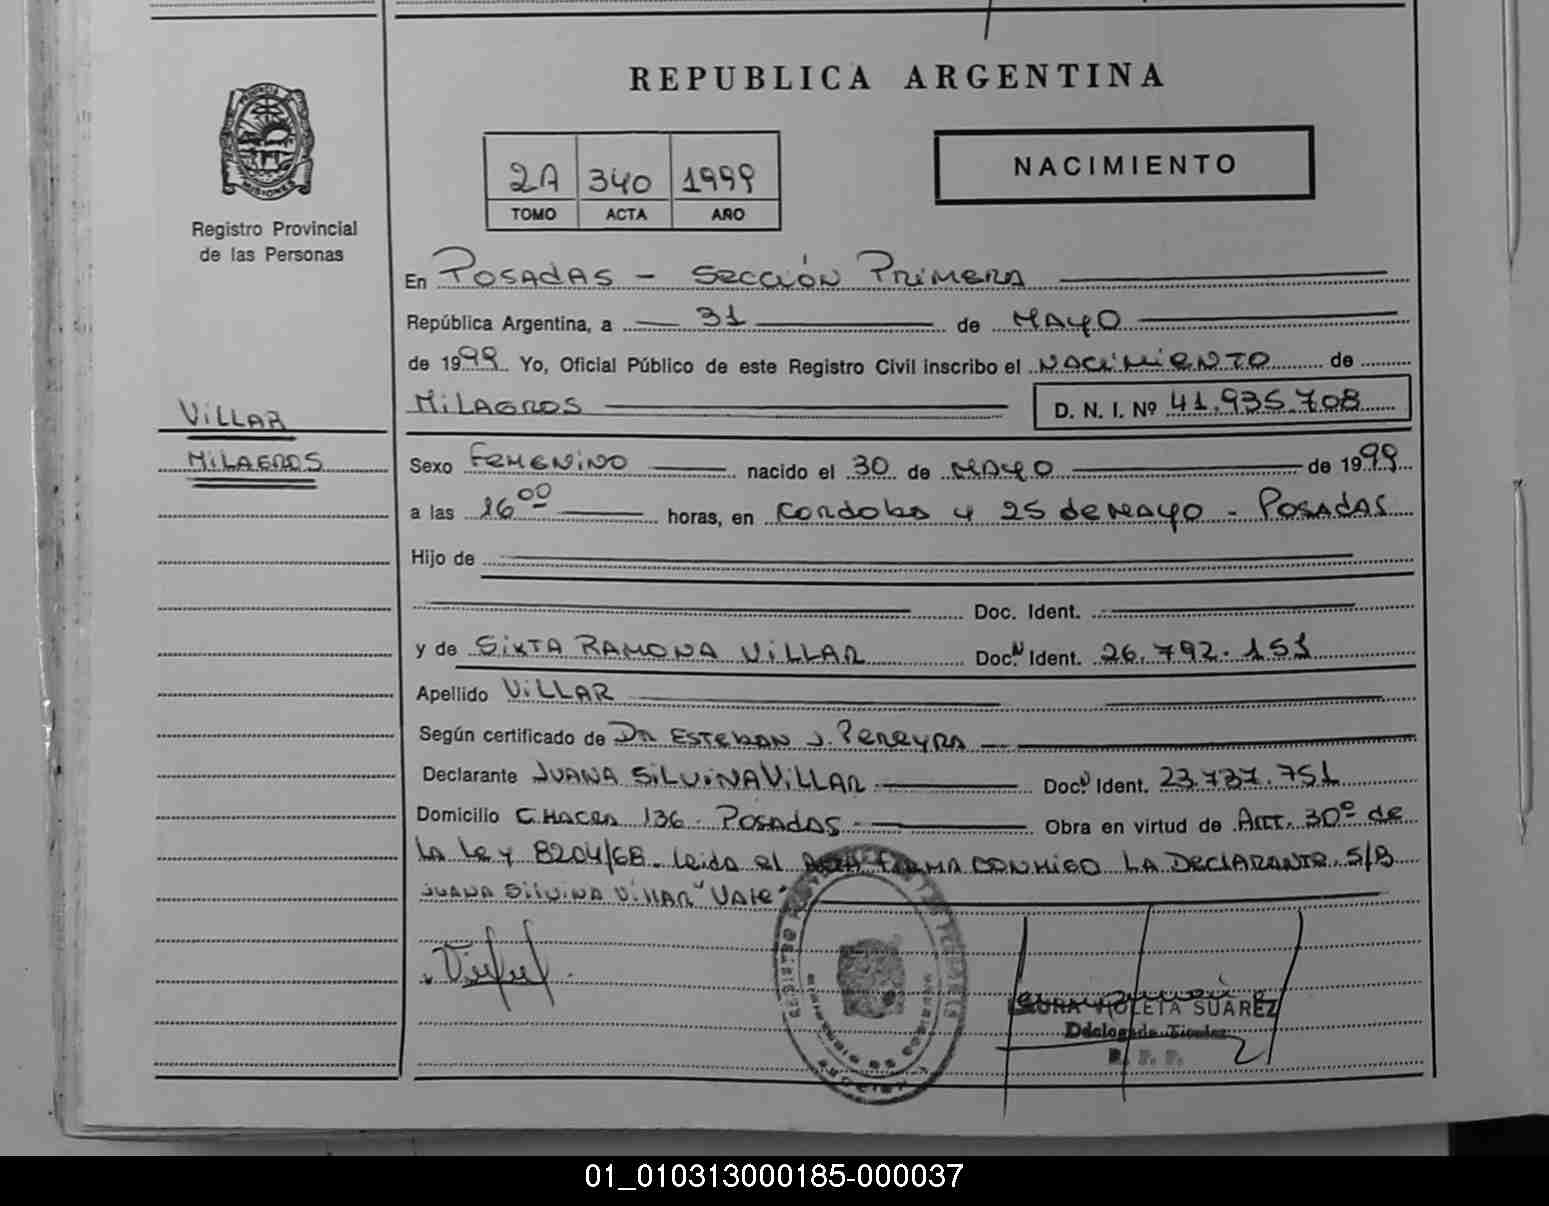 REPUBLICA ARGENTINA
PROVINCIA DE
MISIONES
Registro Provincial
de las Personas
2A 340 1999
TOMO ACTA AÑO
NACIMIENTO
En POSADAS - SECCIÓN PRIMERA
República Argentina, a 31 de MAYO
de 1999 Yo, Oficial Público de este Registro Civil inscribo el NACIMIENTO de
MILAGROS D. N. I. Nº 41.935.708
VILLAR
MILAGROS
Sexo FEMENINO nacido el 30 de MAYO de 1999
a las 16 00 horas, en CORDOBA Y 25 de MAYO - POSADAS
Hijo de
Doc. Ident.
y de SIXTA RAMONA VILLAR Doc. N Ident. 26.792.151
Apellido VILLAR
Según certificado de DR ESTEBAN J. PEREYRA
Declarante JUANA SILVINA VILLAR Doc. N Ident. 23.737.751
Domicilio CHACRA 136 - POSADAS - Obra en virtud de ART. 30º de
LA LEY 8204/68. Leida el ACTA FIRMA CONMIGO LA DECLARANTE S/B
JUANA SILVINA VILLAR "VALE"
LAURA VIOLETA SUAREZ
Delegada Titular
R. P. P.
01_010313000185-000037